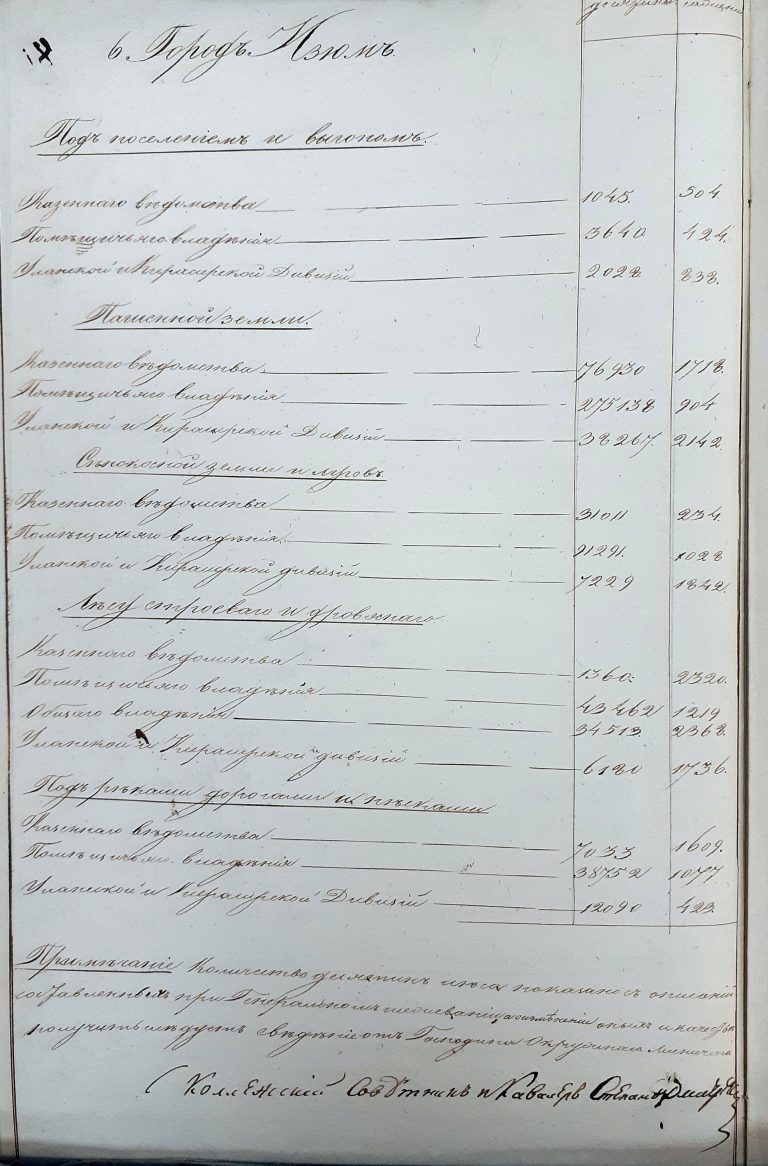 десятины сажени
6 Городъ Изюмъ.
Подъ поселеніемъ и выгономъ.
Казеннаго вѣдомства 1045. 504
Помѣщичьяго владѣнія 3640 424.
Уланской и Кирасирской Дивизій 2028 838.
Пашенной земли.
Казеннаго вѣдомства. 76930 1718.
Помѣщичьяго владѣнія 275138 904
Уланской и Кирасирской Дивизій 38267. 2142
Сѣнокосной земли и луговъ
Казеннаго вѣдомства 31011 234.
Помѣщичьяго владѣнія. 91291. 1028
Уланской и Кирасирской дивизій 7229 1842.
Лѣсу строеваго и дровянаго
Казеннаго вѣдомства 1360. 2320.
Помѣщичьяго владѣнія 43462 1219
Общаго владѣнія 34513. 2368.
Уланской и Кирасирской дивизій 6180 1736.
Подъ рѣками дорогами и пѣсками
Казеннаго вѣдомства 7033 1609.
Помѣщичьяго владѣнія 38752 1077
Уланской и Кирасирской Дивизій 12090 423.
Примѣчаніе Количество десятинъ лѣса показано съ описаній
составленныхъ при Генеральномъ межеваніи, о измѣненіи оныхъ и качествѣ
получить слѣдуетъ свѣдѣніе отъ Господина Окружнаго Лѣсничаго
Коллежскій Совѣтникъ и Кавалеръ Степанъ